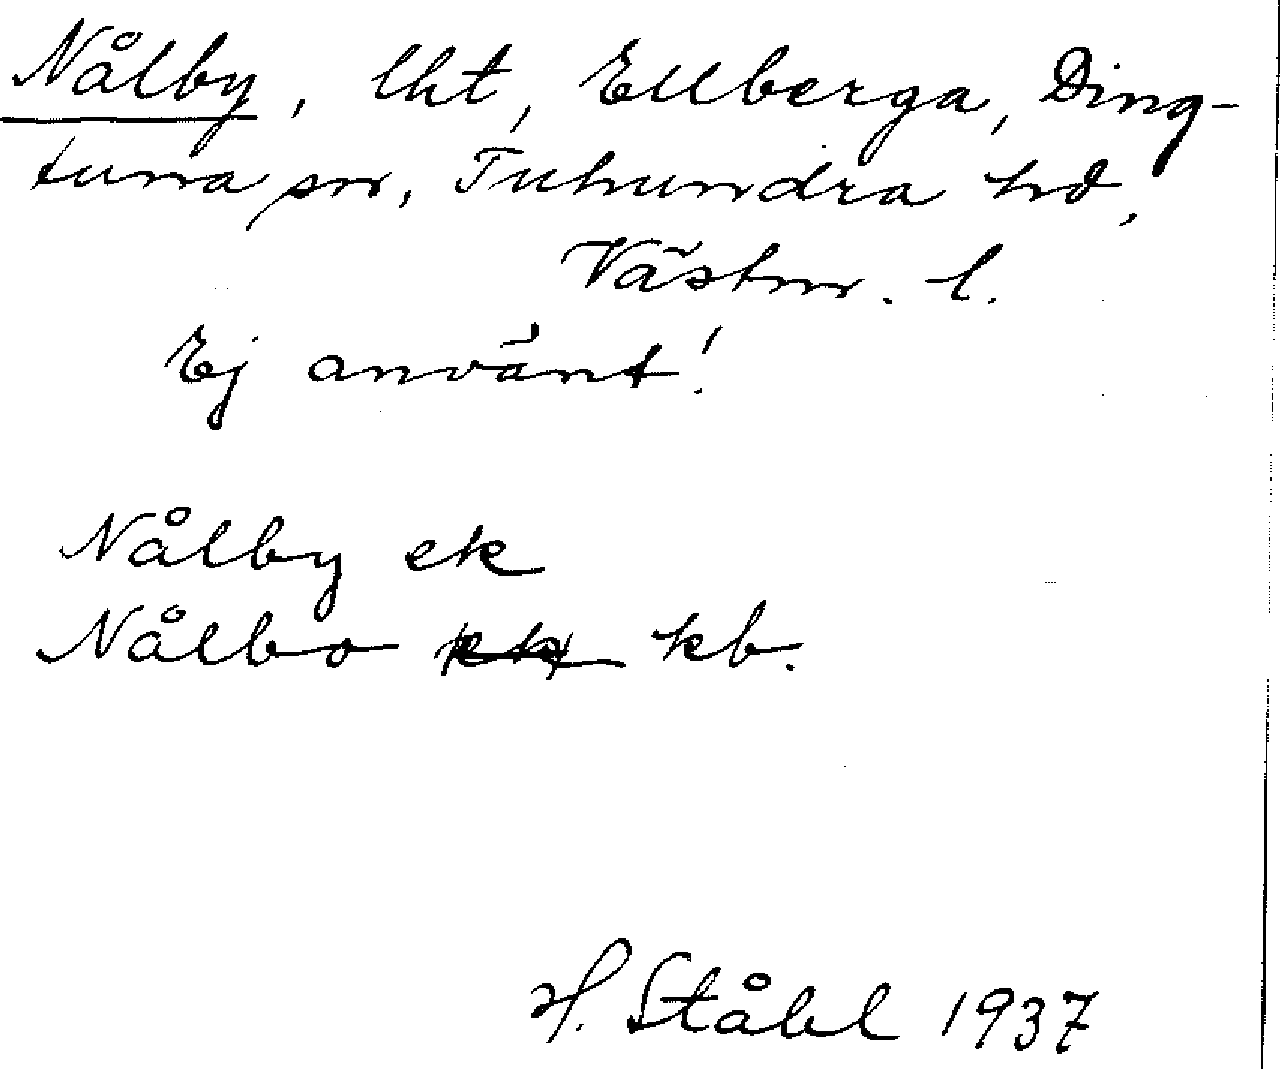 Nålby, lht, Ellberga, Ding-
tuna sn, Tuhundra hd,
Västm. l.
Ej använt!
Nålby ek
Nålbo ek kb.
H. Ståhl 1937